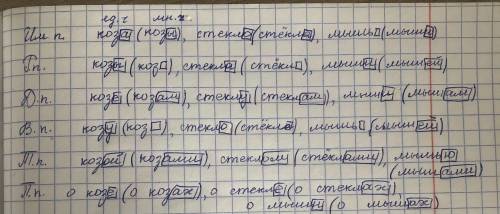 ед. ч мн. ч.
И.м п. коза (козы), стекло (стёкла), мышь (мыши)
Р.п. козы (коз), стекла (стёкол), мыши (мышей)
Д.п. козе (козам), стеклу (стеклам), мыши (мышам)
В.п. козу (коз), стекло (стёкла), мышь (мышей)
Т.п. козой (козами), стеклом (стёклами), мышью
(мышами)
П.п. о козе (о козах), о стекле (о стеклах),
о мыши (о мышах)